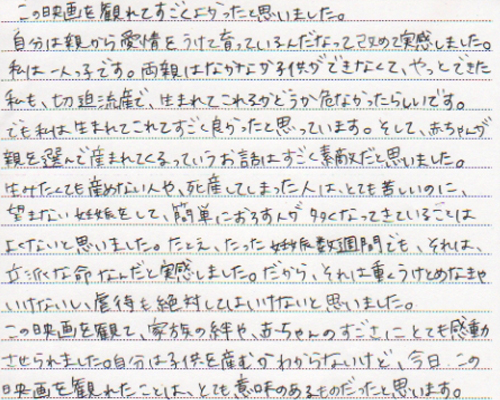 この映画を観れてすごくよかったと思いました。
自分は親から愛情をうけて育っているんだなって改めて実感しました。
私は一人っ子です。両親はなかなか子供ができなくて、やっとできた
私も、切迫流産で、生まれてこれるかどうか危なかったらしいです。
でも私は生まれてこれてすごく良かったと思っています。そして、赤ちゃんが
親を選んで産まれてくるっていうお話はすごく素敵だと思いました。
生みたくても産めない人や、死産してしまった人は、とても苦しいのに、
望まない妊娠をして、簡単におろす人が多くなってきていることは
よくないと思いました。たとえ、たった妊娠数週間でも、それは、
立派な命なんだと実感しました。だから、それは重くうけとめなきゃ
いけないし、虐待も絶対してはいけないと思いました。
この映画を観て、家族の絆や、赤ちゃんのすごさにとても感動
させられました。自分は子供を産むかわからないけど、今日、この
映画を観れたことは、とても意味のあるものだったと思います。